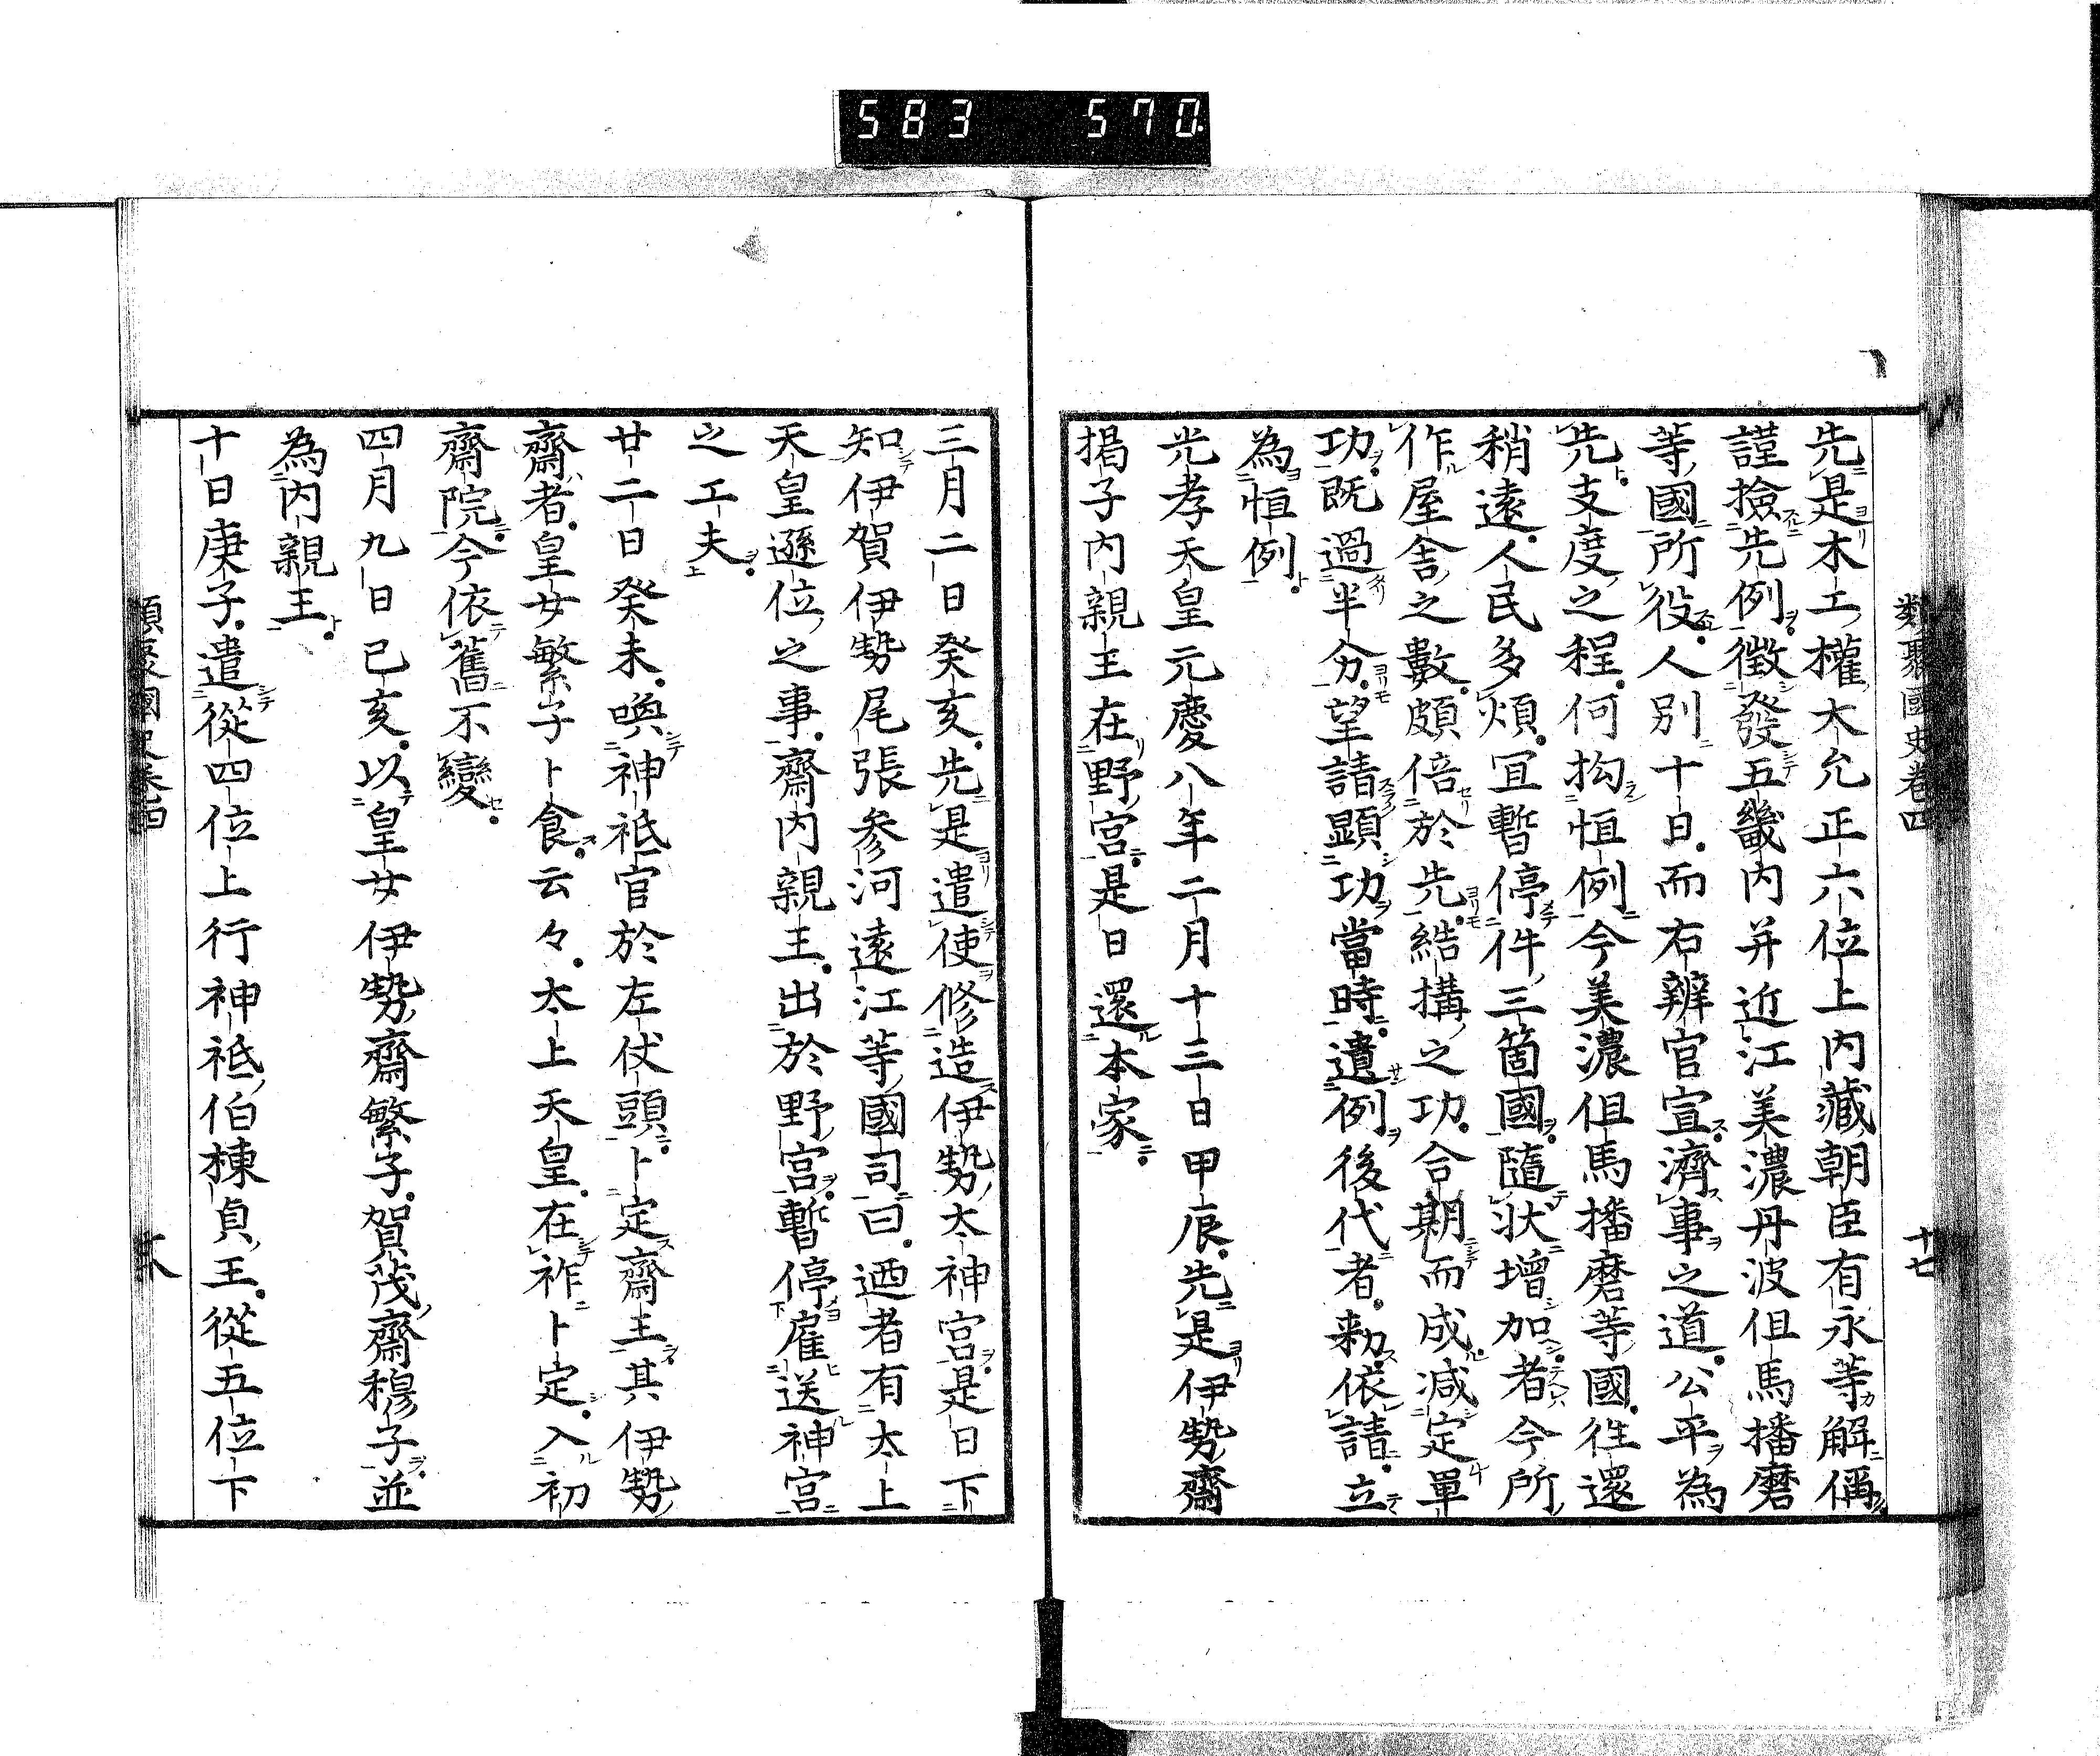 583 570
類聚國史卷四 十七
先是木工權大允正六位上内藏朝臣有永等解偁
謹撿先例徵發五畿内并近江美濃丹波但馬播磨
等國所役人別十日而右辨官宣濟事之道公平為
先支度之程何拘恒例今美濃但馬播磨等國往還
稍遠人民多煩宜暫停件三箇國隨狀增加者今所
作屋舍之數頗倍於先結構之功合期而成減定單
功既過半分望請顕功當時遺例後代者勅依請立
為恒例
光孝天皇元慶八年二月十三日甲辰先是伊勢齋
掲子内親王在野宮是日還本家
三月二日癸亥先是遣使修造伊勢太神宮是日下
知伊賀伊勢尾張参河遠江等國司曰迺者有太上
天皇遜位之事齋内親王出於野宮暫停雇送神宮
之工夫
廿二日癸未喚神祇官於左仗頭卜定齋王其伊勢
齋者皇女繁子卜食云々太上天皇在祚卜定入初
齋院今依舊不變
四月九日己亥以皇女伊勢齋繁子賀茂齋穆子並
為内親王
十日庚子遣從四位上行神祇伯棟貞王從五位下